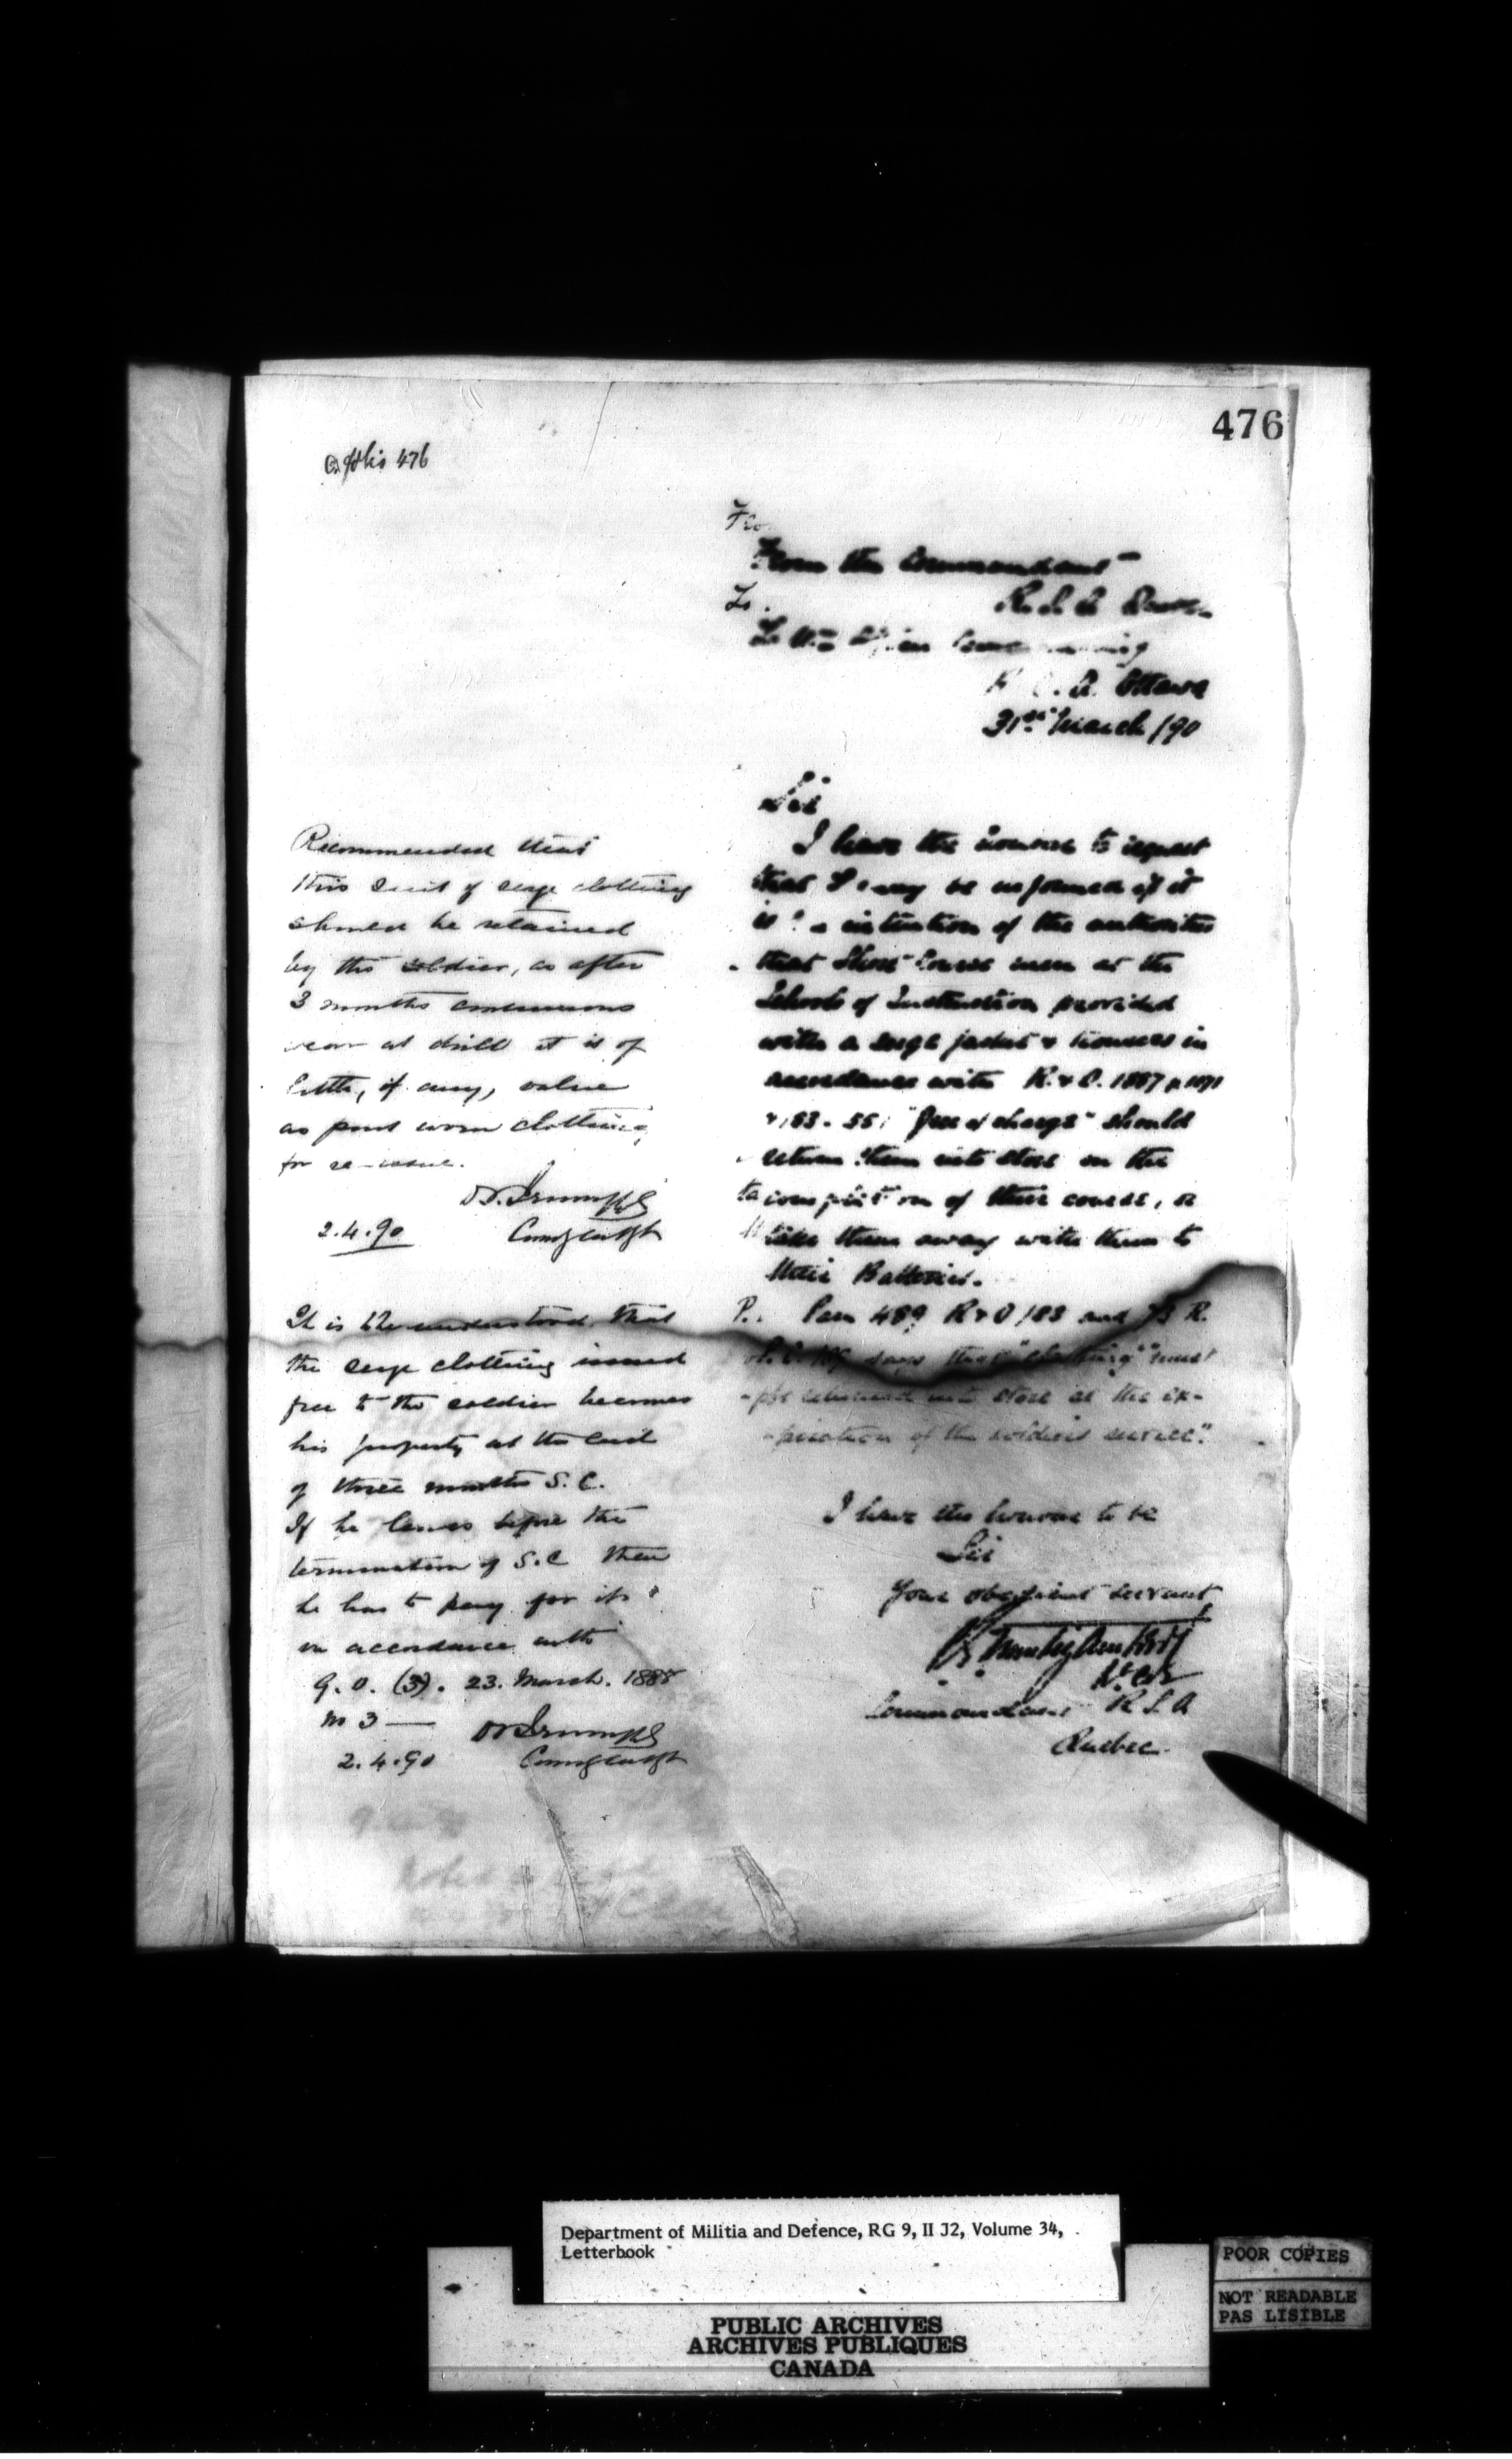 476
folio 476
Fro
From the Commandant
R. S. A
To.
To the Officer Commanding
R. C. A. Ottawa
31st March /90
Sir
I have the honour to request
that I may be informed if it
is the intention of the authorities
that Short Course men at the
Schools of Instruction provided
with a serge jacket & trousers in
accordance with R. & O. 1887 p
"free of charge" should
return them into store on the
completion of their course, or
take them away with them to
their Batteries.
Para 489 R & O /83 and R.
says that "clothing" "must
be returned into store at the ex-
-piration of the soldiers service".
I have the honour to be
Sir
Your obedient servant
Lt. Col
Commandant R S A
Quebec
Recommended that
this suit of serge clothing
should be retained
by the soldier, as after
3 months continuous
wear at drill it is of
little, if any, value
as part worn clothing
for re-issue.
2.4.90
It is understood that
the serge clothing issued
free to the soldier becomes
his property at the end
of three months S. C.
If he leaves before the
termination of S. C then
he has to pay for it
in accordance with
G. O. (3). 23. March. 1888
No 3 —
2.4.90
Department of Militia and Defence, RG 9, II J2, Volume 34,
Letterbook
POOR COPIES
NOT READABLE
PAS LISIBLE
PUBLIC ARCHIVES
ARCHIVES PUBLIQUES
CANADA